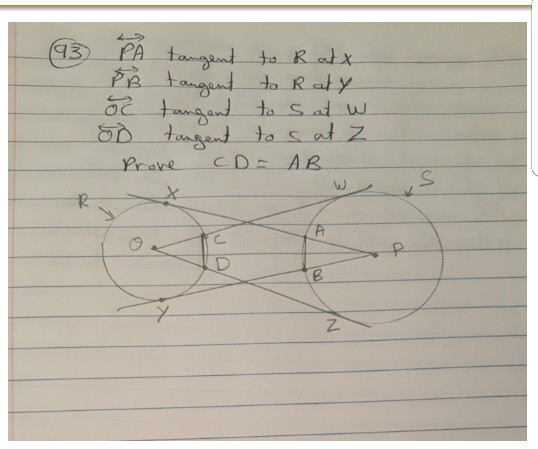 93 PA tangent to R at X
PB tangent to R at Y
OC tangent to S at W
OD tangent to S at Z
Prove CD = AB
R X W S
O C A P
D B
Y Z